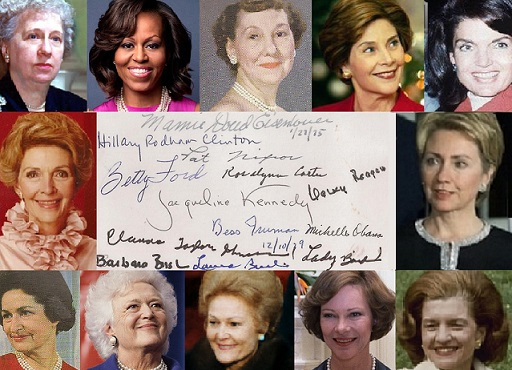 Mamie Doud Eisenhower
1/23/75
Hillary Rodham Clinton
Pat Nixon
Betty Ford
Rosalynn Carter
Nancy Reagan
Jacqueline Kennedy
Bess Truman
Michelle Obama
12/10/79
Lady Bird
Barbara Bush
Laura Bush